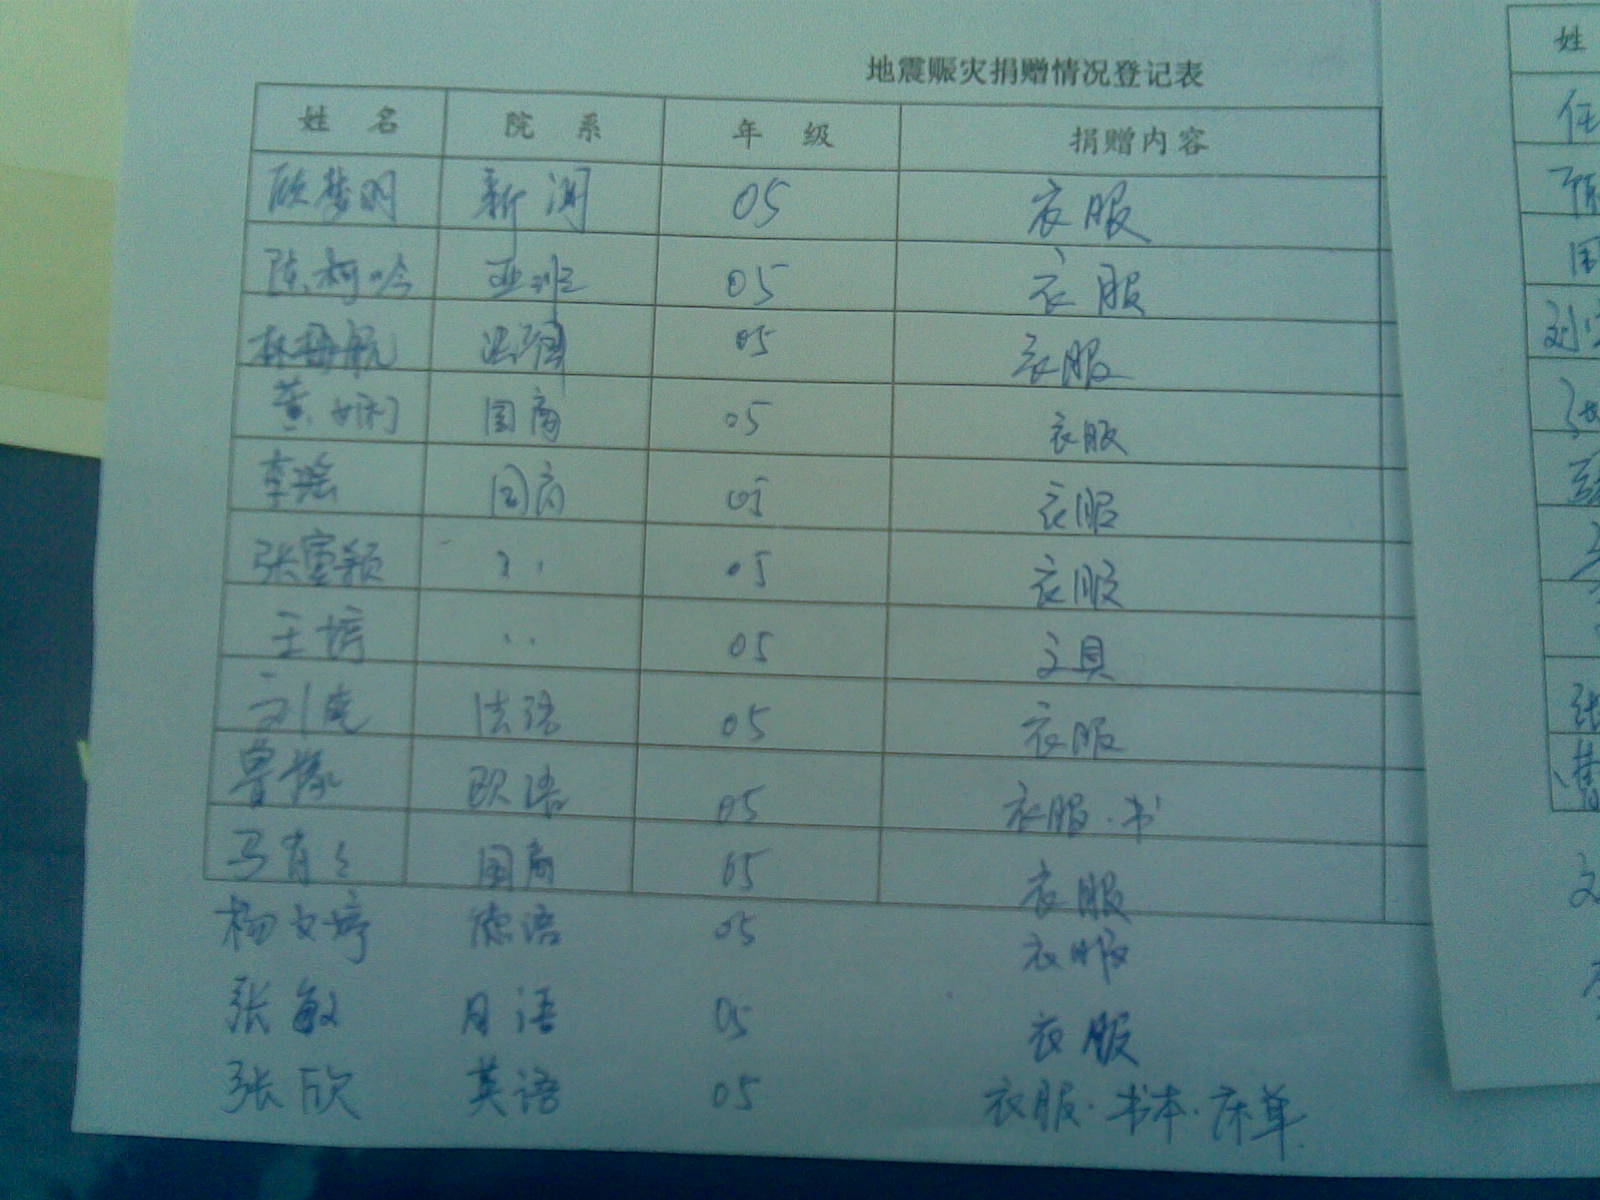 地震赈灾捐赠情况登记表
姓名 院系 年级 捐赠内容
新闻 05 衣服
陈柯吟 05 衣服
林 航 05 衣服
黄 国商 05 衣服
李瑶 国商 05 衣服
张雪颖 〃 05 衣服
王 〃 05 文具
刘 法语 05 衣服
鲁 欧语 05 衣服·书
马青〻 国商 05 衣服
杨文婷 德语 05 衣服
张敏 日语 05 衣服
张欣 英语 05 衣服·书本·床单
姓
任
刘
张